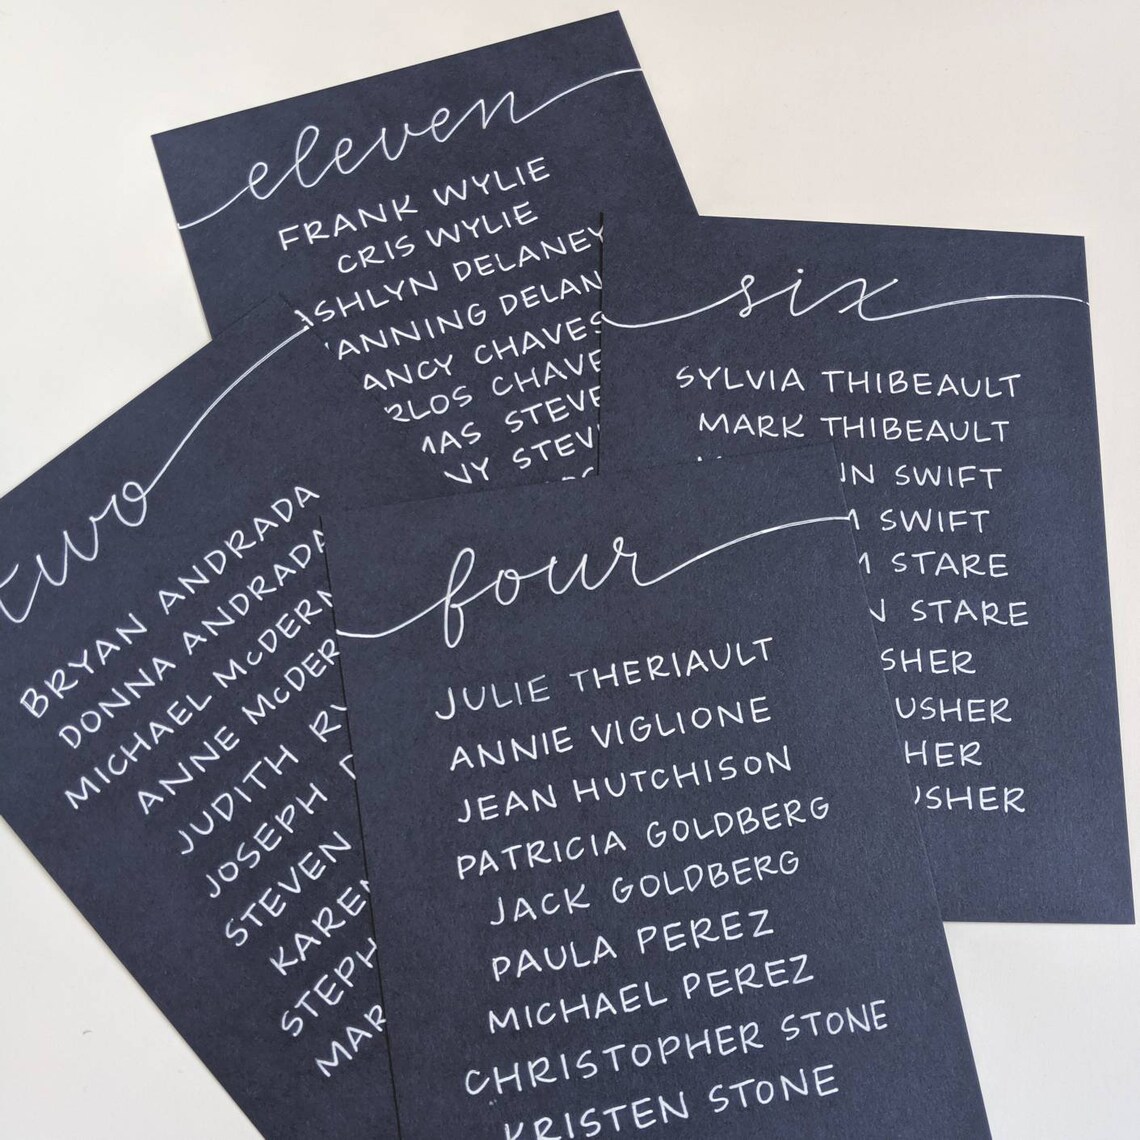 eleven
FRANK WYLIE
CRIS WYLIE
SHLYN DELANEY
ANNING DELAN
ANCY CHAVES
RLOS CHAVE
MAS STEVE
NY STEV
six
SYLVIA THIBEAULT
MARK THIBEAULT
SWIFT
SWIFT
STARE
STARE
SHER
USHER
HER
USHER
two
BRYAN ANDRADA
DONNA ANDRADA
MICHAEL McDERM
ANNE McDER
JUDITH
JOSEPH
STEVEN
KAREN
STEPH
MAR
four
JULIE THERIAULT
ANNIE VIGLIONE
JEAN HUTCHISON
PATRICIA GOLDBERG
JACK GOLDBERG
PAULA PEREZ
MICHAEL PEREZ
CHRISTOPHER STONE
KRISTEN STONE